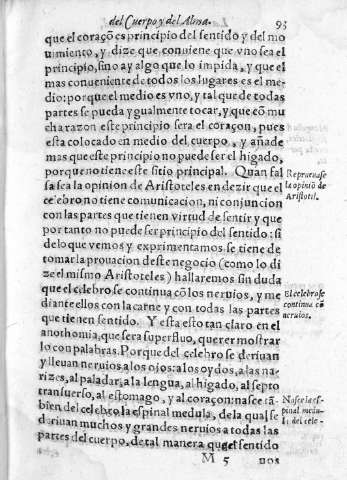 del Cuerpo y del Alma. 93
que el coraçõ es principio del sentido y del mo
uimiento, y dize que conuiene que vno sea el
principio, sino ay algo que lo impida, y que el
mas conueniente de todos los lugares es el me-
dio: porque el medio es vno, y tal que de todas
partes se pueda ygualmente tocar, y que cõ mu
cha razon este principio sera el coraçon, pues
esta colocado en medio del cuerpo, y añade
mas que este principio no puede ser el higado,
porque no tiene este sitio principal. Quan fal
sa sea la opinion de Aristoteles en dezir que el
celebro no tiene comunicacion, ni conjuncion
con las partes que tienen virtud de sentir y que
por tanto no puede ser principio del sentido: si
de lo que vemos y exprimentamos se tiene de
tomar la prouacion deste negocio (como lo di
ze el mismo Aristoteles) hallaremos sin duda
que el celebro se continua cõ los neruios, y me
diante ellos con la carne y con todas las partes
que tienen sentido. Y esta esto tan claro en el
anothomia, que sera superfluo, querer mostrar
lo con palabras. Porque del celebro se deriuan
y lleuan neruios a los ojos: a los oydos, a las na-
rizes, al paladar, a la lengua, al higado, al septo
transuerso, al estomago, y al coraçon: nasce tã-
bien del celebro la espinal medula, de la qual se
diriuan muchos y grandes neruios a todas las
partes del cuerpo, de tal manera que el sentido
M 5 nos
Reprueuase
la opiniõ de
Aristotil.
El celebro se
continua cõ
neruios.
Nasce la es-
pinal medu-
la del cele-